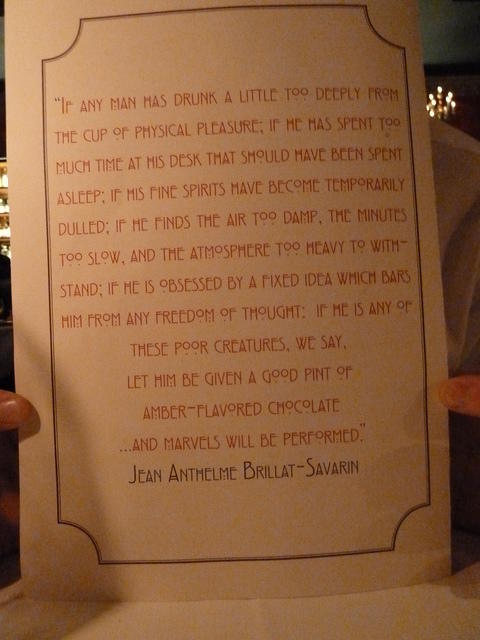 "If any man has drunk a little too deeply from
the cup of physical pleasure; if he has spent too
much time at his desk that should have been spent
asleep; if his fine spirits have become temporarily
dulled; if he finds the air too damp, the minutes
too slow, and the atmosphere too heavy to with-
stand; if he is obsessed by a fixed idea which bars
him from any freedom of thought: if he is any of
these poor creatures, we say,
let him be given a good pint of
amber-flavored chocolate
...and marvels will be performed."
Jean Anthelme Brillat-Savarin